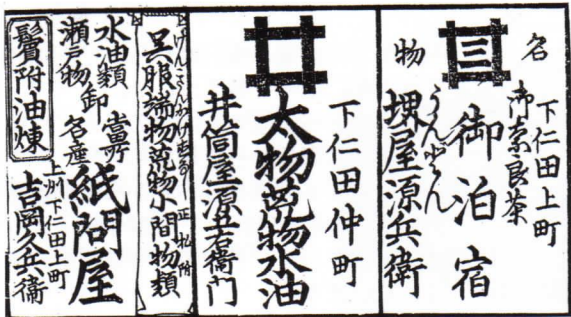 名物
三
下仁田上町
御奈良茶
御泊宿
うんどん
堺屋源兵衛
下仁田仲町
太物荒物水油
井筒屋源左衛門
げんきんかけねなし 正札附
呉服端物荒物小間物類
水油類
瀬戸物卸
當所名産
紙問屋
上州下仁田上町
吉岡久兵衛
鬢附油煉